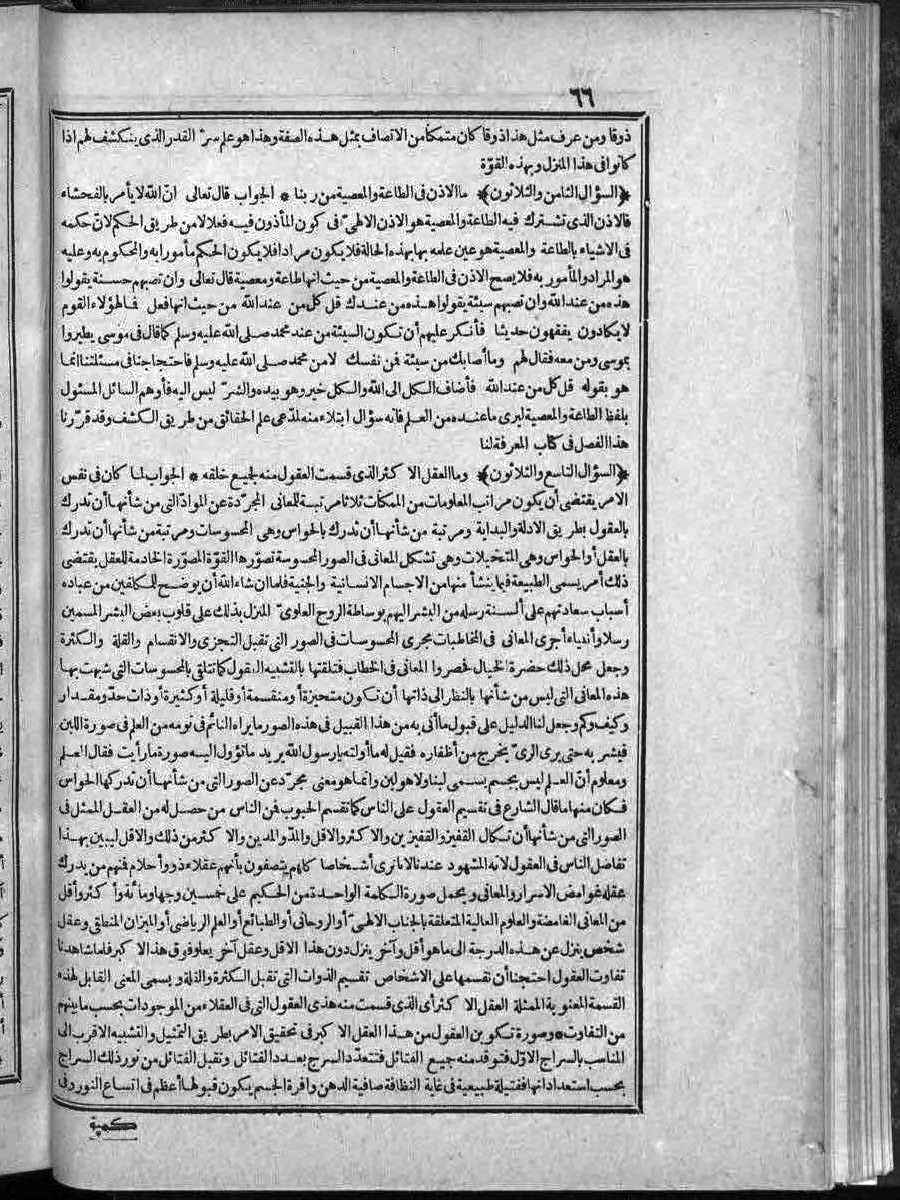 ٦٦
ذوقا ومن عرف مثل هذا ذوقا كان متمكنا من الاتصاف بمثل هذه الصفة وهذا هو علم سر القدر الذى ينكشف لهم اذا
كانوا فى هذا المنزل وبهذه القوّة
﴿السؤال الثامن والثلاثون﴾ ما الاذن فى الطاعة والمعصية من ربنا * الجواب قال تعالى انّ الله لا يأمر بالفحشاء
فالاذن الذى تشترك فيه الطاعة والمعصية هو الاذن الالهىّ فى كون المأذون فيه فعلا لا من طريق الحكم لانّ حكمه
فى الاشياء بالطاعة والمعصية هو عين علمه بها بهذه الحالة فلا يكون مرادا فلا يكون الحكم مأمورا به والمحكوم به وعليه
هو المراد والمأمور به فلا يصح الاذن فى الطاعة والمعصية من حيث انها طاعة ومعصية قال تعالى وان تصبهم حسنة يقولوا
هذه من عند الله وان تصبهم سيئة يقولوا هذه من عندك قل كل من عند الله من حيث انها فعل فما لهؤلاء القوم
لا يكادون يفقهون حديثا فأنكر عليهم أن تكون السيئة من عند محمد صلى الله عليه وسلم كما قال فى موسى يطيروا
بموسى ومن معه فقال لهم وما أصابك من سيئة فمن نفسك لا من محمد صلى الله عليه وسلم فاحتجاجنا فى مسئلتنا انما
هو بقوله قل كل من عند الله فأضاف الكل الى الله والكل خير وهو بيده والشرّ ليس اليه فأوهم السائل المسئول
بلفظ الطاعة والمعصية ليرى ما عنده من العلم فانه سؤال ابتلاء منه لمدّعى علم الحقائق من طريق الكشف وقد قرّرنا
هذا الفصل فى كتاب المعرفة لنا
﴿السؤال التاسع والثلاثون﴾ وما العقل الاكثر الذى قسمت العقول منه لجميع خلقه * الجواب لما كان فى نفس
الامر يقتضى أن يكون مراتب المعلومات من الممكنات ثلاثا مرتبة للمعانى المجرّدة عن الموادّ التى من شأنها أن تدرك
بالعقول بطريق الادلة والبداية ومرتبة من شأنها أن تدرك بالحواس وهى المحسوسات ومرتبة من شأنها أن تدرك
بالعقل أو الحواس وهى المتخيلات وهى تشكل المعانى فى الصور المحسوسة تصوّرها القوّة المصوّرة الخادمة للعقل يقتضى
ذلك أمر يسمى الطبيعة فيما ينشأ منها من الاجسام الانسانية والجنية فلما ان شاء الله أن يوضح للمكلفين من عباده
أسباب سعادتهم على ألسنة رسله من البشر اليهم بوساطة الروح العلوىّ المنزل بذلك على قلوب بعض البشر المسمين
رسلا وأنبياء أجرى المعانى فى المخاطبات مجرى المحسوسات فى الصور التى تقبل التجزى والانقسام والقلة والكثرة
وجعل محل ذلك حضرة الخيال فحصروا المعانى فى الخطاب فتلقتها بالتشبيه العقول كما تتلقى بالمحسوسات التى شبهت بها
هذه المعانى التى ليس من شأنها بالنظر الى ذاتها أن تكون متحيزة أو منقسمة أو قليلة أو كثيرة أو ذات حدّ ومقدار
وكيف وكم وجعل لنا الدليل على قبول ما أتى به من هذا القبيل فى هذه الصور ما يراه النائم فى نومه من العلم فى صورة اللبن
فيشربه حتى يرى الرىّ يخرج من أظفاره فقيل له ما أوّلته يا رسول الله يريد ما تؤول اليه صورة ما رأيت فقال العلم
ومعلوم أنّ العلم ليس بجسم يسمى لبنا ولا هو لبن وانما هو معنى مجرّد عن الصور التى من شأنها أن تدركها الحواس
فكان منها ما قال الشارع فى تقسيم العقول على الناس كما تقسم الحبوب فمن الناس من حصل له من العقل الممثل فى
الصور التى من شأنها أن تكال القفيز والقفيزين والاكثر والاقل والمدّ والمدين والاكثر من ذلك والاقل ليبين بهذا
تفاضل الناس فى العقول لانه المشهود عندنا لانا نرى أشخاصا كلهم يتصفون بأنهم عقلاء ذوو أحلام فمنهم من يدرك
عقله غوامض الاسرار والمعانى ويحمل صورة الكلمة الواحدة من الحكيم على خمسين وجها ومائة وأكثر وأقل
من المعانى الغامضة والعلوم العالية المتعلقة بالجناب الالهىّ أو الروحانى أو الطبائع أو العلم الرياضى أو الميزان المنطقى وعقل
شخص ينزل عن هذه الدرجة الى ما هو أقل وآخر ينزل دون هذا الاقل وعقل آخر يعلو فوق هذا الاكبر فلما شاهدنا
تفاوت العقول احتجنا أن نقسمها على الاشخاص تقسيم الذوات التى تقبل الكثرة والقلة ويسمى المعنى القابل لهذه
القسمة المعنوية الممثلة العقل الاكثر أى الذى قسمت منه هذى العقول التى فى العقلاء من الموجودات بحسب ما بينهم
من التفاوت * وصورة تكوين العقول من هذا العقل الاكبر فى تحقيق الامر بطريق التمثيل والتشبيه الاقرب الى
المناسب بالسراج الاوّل فتوقد منه جميع الفتائل فتتعدّد السرج بعدد الفتائل وتقبل الفتائل من نور ذلك السراج
بحسب استعداداتها ففتيلة طبيعية فى غاية النظافة صافية الدهن وافرة الجسم يكون قبولها أعظم فى اتساع النور وفى
كمية